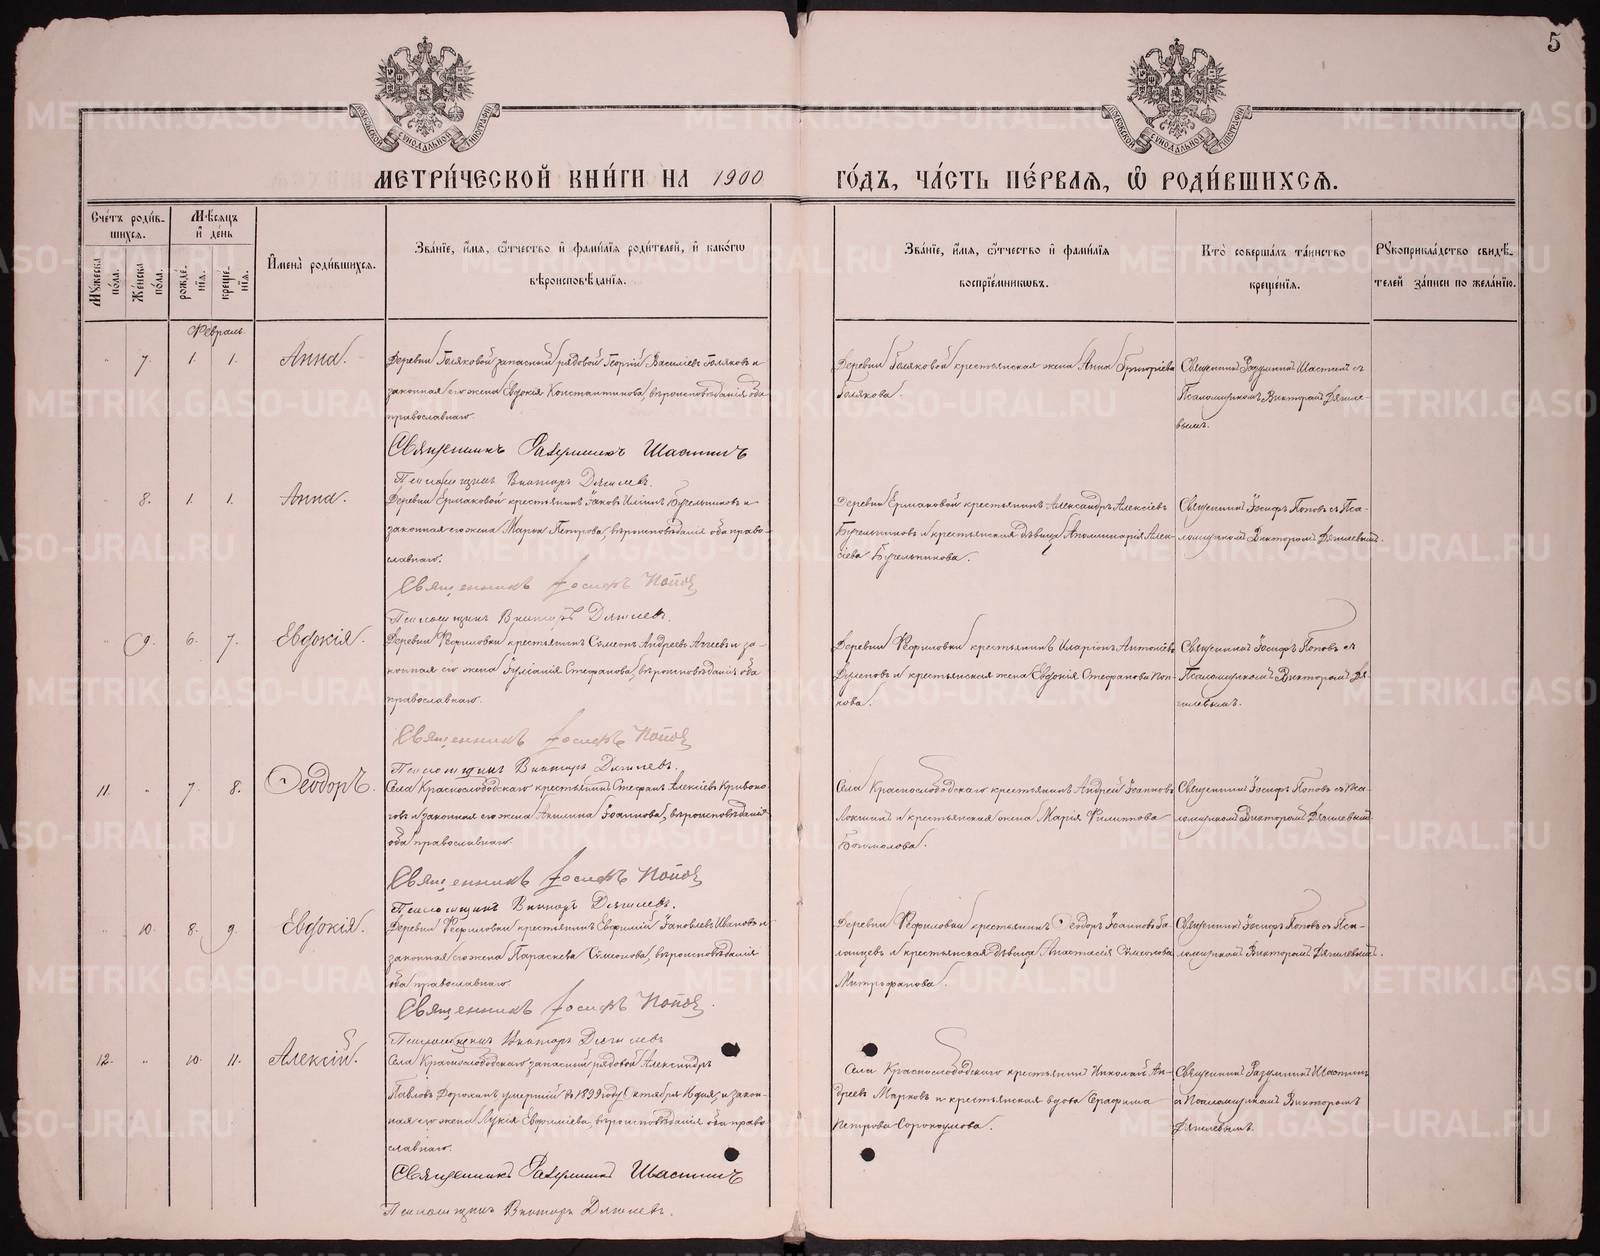 5
МОСКОВСКОЙ СУНОДАЛЬНОЙ ТИПОГРАФІИ
МОСКОВСКОЙ СУНОДАЛЬНОЙ ТИПОГРАФІИ
МЕТРИ́ЧЕСКОЙ КНИ́ГИ НА 1900 ГО́ДЪ, ЧА́СТЬ ПЕ́РВАѦ, Ѡ҆ РОДИ́ВШИХСѦ.
Сче́тъ роди́в-
шихсѧ.
Мꙋжеска по́ла.
Же́нска по́ла.
Мѣ́сѧцъ
и҆ де́нь
рожде́нїѧ.
креще́нїѧ.
И҆мена̀ роди́вшихсѧ.
Зва́нїе, и҆́мѧ, ѻ҆́тчество и҆ фами́лїѧ роди́телей, и҆ како́гѡ
вѣроисповѣ́данїѧ.
Зва́нїе, и҆́мѧ, ѻ҆́тчество и҆ фами́лїѧ
воспрїе́мникѡвъ.
Кто̀ соверша́лъ та́инство
креще́нїѧ.
Рꙋкоприкла́дство свидѣ́-
телей за́писи по жела́нїю.
Февраль
" 7. 1. 1. Анна.
Деревни Голяковой запасный рядовой Георгій Василіевъ Голяковъ и
законная его жена Евдокія Константинова, вѣроисповѣданія оба
православнаго.
Священникъ Разумникъ Шастинъ
Псаломщикъ Викторъ Дягилевъ.
Деревни Голяковой крестьянская жена Анна Григоріева
Голякова.
Священникъ Разумникъ Шастинъ съ
Псаломщикомъ Викторомъ Дягиле-
вымъ.
" 8. 1. 1. Анна.
Деревни Ермаковой крестьянинъ Іаковъ Иліинъ Бучельниковъ и
законная его жена Марія Петрова, вѣроисповѣданія оба право-
славнаго.
Священникъ Іосифъ Попов
Псаломщикъ Викторъ Дягилевъ.
Деревни Ермаковой крестьянинъ Александръ Алексіевъ
Бучельниковъ и крестьянская дѣвица Аполлинарія Алек-
сіева Бучельникова.
Священникъ Іосифъ Поповъ съ Пса-
ломщикомъ Викторомъ Дягилевымъ.
" 9. 6. 7. Евдокія.
крестьянинъ Симеонъ Андреевъ и за-
конная его жена Іуліанія Стефанова, вѣроисповѣданія оба
православнаго.
Священникъ Іосифъ Попов
Псаломщикъ Викторъ Дягилевъ.
крестьянинъ Иларіонъ
и крестьянская жена Евдокія Стефанова Поп-
кова.
Священникъ Іосифъ Поповъ съ
Псаломщикомъ Викторомъ Дя-
гилевымъ.
11. " 7. 8. Ѳеодоръ.
Села Краснослободскаго крестьянинъ Стефанъ Алексіевъ Кривоно-
говъ и законная его жена Акилина Іоаннова, вѣроисповѣданія
оба православнаго.
Священникъ Іосифъ Попов
Псаломщикъ Викторъ Дягилевъ.
Села Краснослободскаго крестьянинъ Андрей Іоанновъ
и крестьянская жена Марія Филиппова
Богомолова.
Священникъ Іосифъ Поповъ съ Пса-
ломщикомъ Викторомъ Дягилевымъ.
" 10. 8. 9. Евдокія.
крестьянинъ Евфимій Іаковлевъ Ивановъ и
законная его жена Параскева Симеонова, вѣроисповѣданія
оба православнаго.
Священникъ Іосифъ Попов.
Псаломщикъ Викторъ Дягилевъ
крестьянинъ Ѳеодоръ Іоанновъ Га-
ланцевъ и крестьянская дѣвица Анастасія Симеонова
Митрофанова.
Священникъ Іосифъ Поповъ съ Пса-
ломщикомъ Викторомъ Дягилевымъ.
12. " 10. 11. Алексій.
Села Краснослободскаго запасный рядовой Александръ
Павловъ умершій въ 1899 году Октября дня, и закон-
ная его жена Лукія Евфиміева, вѣроисповѣданія оба право-
славнаго.
Священникъ Разумникъ Шастинъ
Псаломщикъ Викторъ Дягилевъ.
Села Краснослободскаго крестьянинъ Николай Ан-
дреевъ Марковъ и крестьянская вдова Серафима
Петрова Сорокоумова.
Священникъ Разумникъ Шастинъ
съ Псаломщикомъ Викторомъ
Дягилевымъ.
METRIKI.GASO-URAL.RU